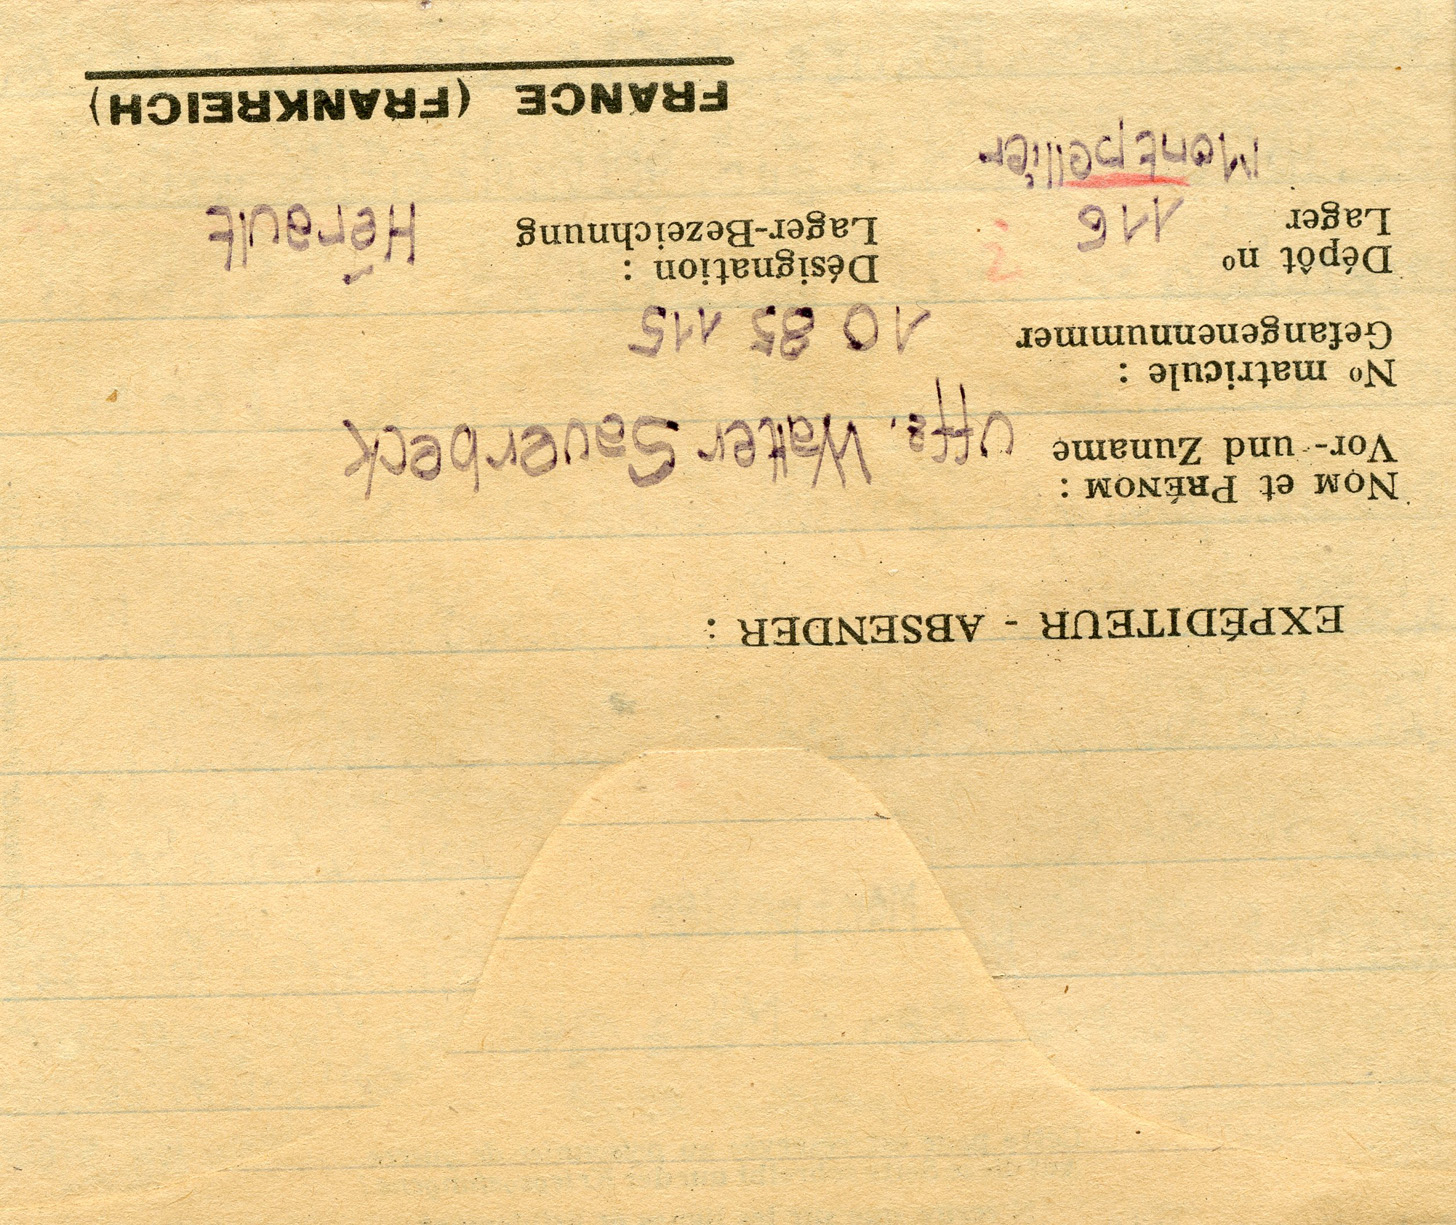 EXPÉDITEUR - ABSENDER :
NOM et PRÉNOM :
Vor- und Zuname Uffz. Walter Sauerbeck
No matricule :
Gefangenennummer 10 85 115
Dépôt no Désignation :
Lager 116 Lager-Bezeichnung Hérault
Montpellier
FRANCE (FRANKREICH)